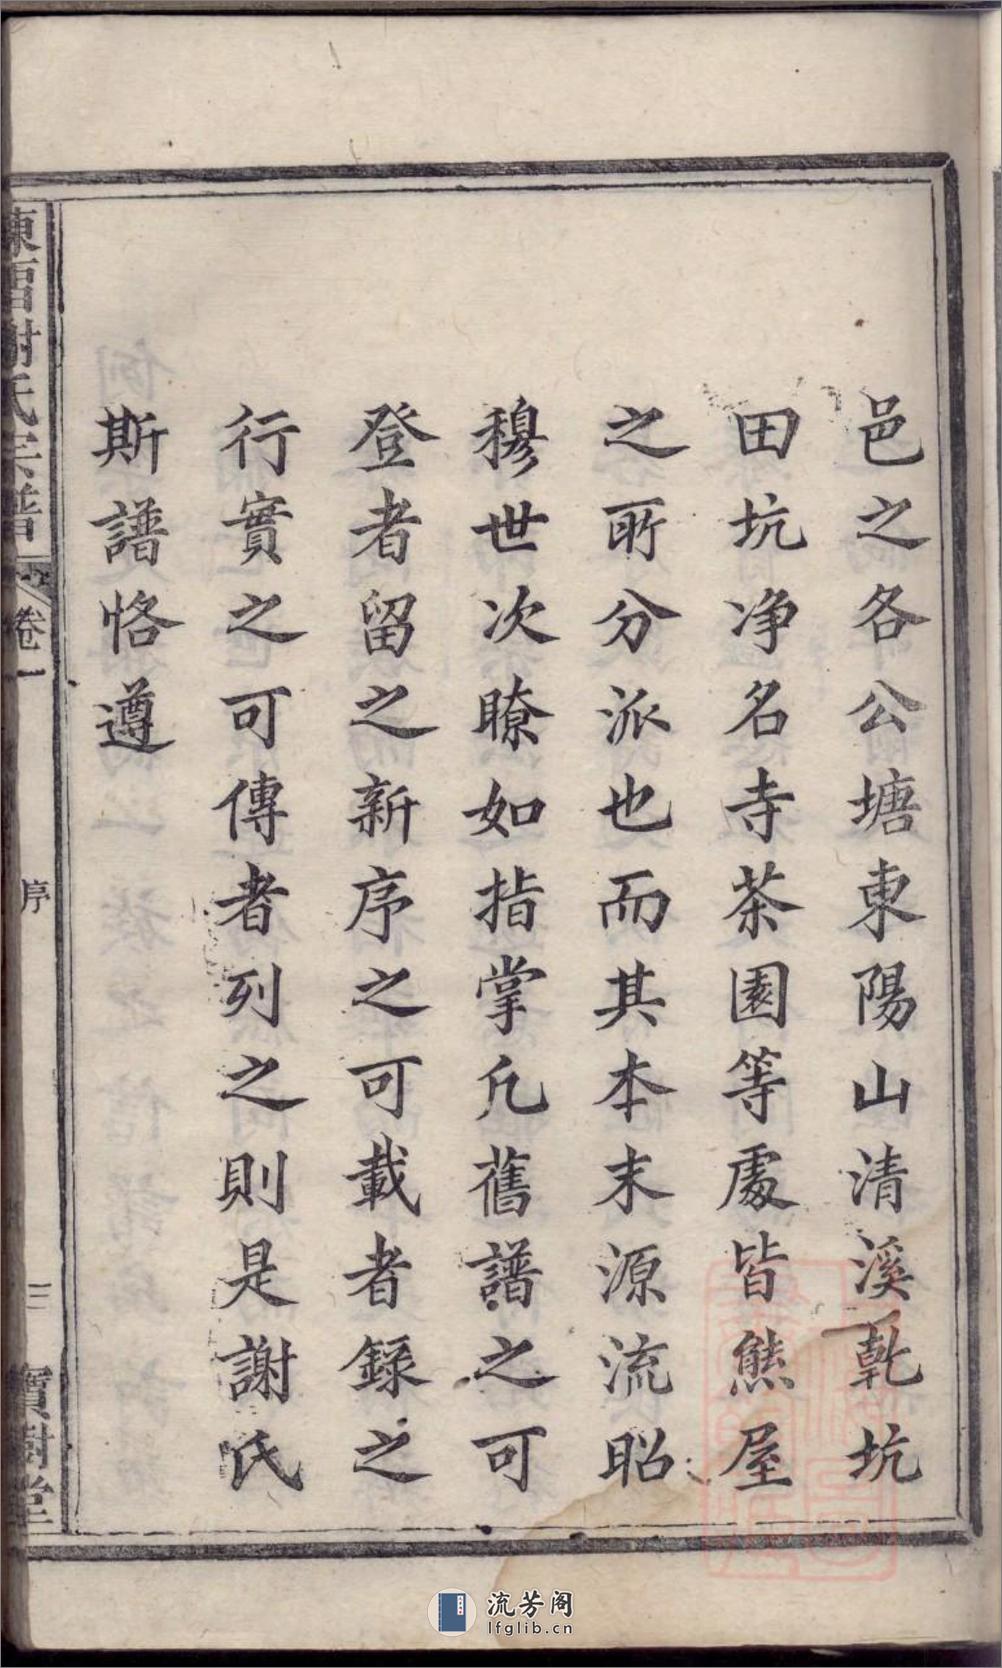 邑之各公塘東陽山清溪乾坑
田坑净名寺茶園等處皆熊屋
之所分派也而其本末源流昭
穆世次瞭如指掌凡舊譜之可
登者留之新序之可載者録之
行實之可傳者列之則是謝氏
斯譜恪遵
謝氏宗譜 卷一 序 三 寶樹堂
流芳阁
lfglib.cn